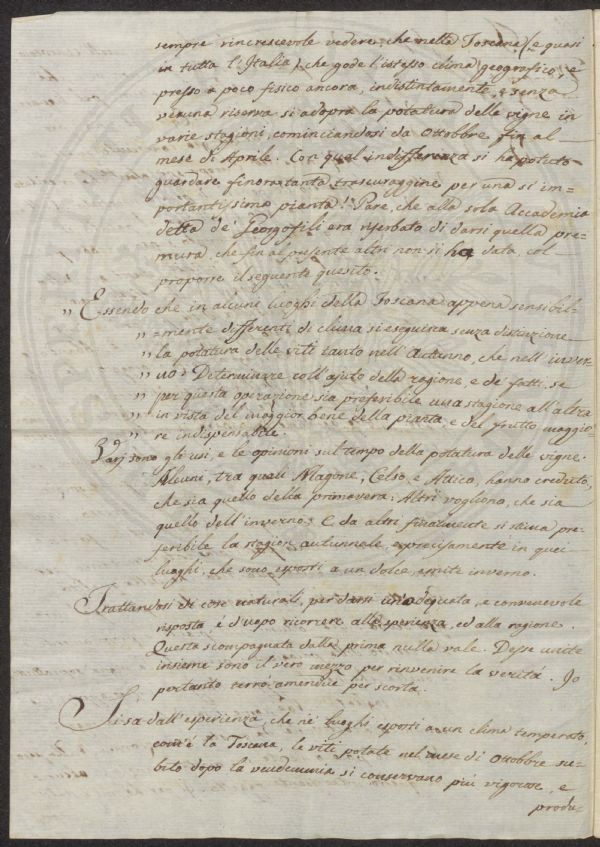 sempre rincrescevole vedere, che nella Toscana (e quasi
in tutta l'Italia) che gode l'istesso clima geografico, e
presso a poco fisico ancora, indistintamente, e senza
veruna riserva si adopra la potatura delle vigne in
varie stagioni, cominciandosi da Ottobbre fin al
mese di Aprile. Con qual indifferenza si ha potuto
guardare finora tanta trascuraggine per una sì im=
portantissima pianta! Pare, che alla sola Accademia
detta de' Georgofili era riserbato di darsi quella pre=
mura, che fin al presente altri non si ha data, col
proporre il seguente quesito.
" Essendo che in alcuni luoghi della Toscana appena sensibil=
" =mente differenti di clima si eseguisca senza distinzione
" la potatura delle viti tanto nell'Autunno, che nell'inver
" no: Determinare coll'ajuto della ragione, e de' fatti, se
" per questa operazione sia preferibile una stagione all'altra
" in vista del maggior bene della pianta, e del frutto maggio=
" re indispensabile.
Varj sono gli usi, e le opinioni sul tempo della potatura delle vigne.
Alcuni, tra quali Magone, Celso, e Attico, hanno creduto,
che sia quello della primavera: Altri vogliono, che sia
quello dell'inverno: E da altri finalmente si stima pre=
feribile la stagion autunnale, e precisamente in quei
luoghi, che sono esposti a un dolce, e mite inverno.
Trattandosi di cose naturali, per darsi un'adequata, e convenevole
risposta è d'uopo ricorrere alla sperienza, ed alla ragione.
Questa scompagnata dalla prima nulla vale. Desse unite
insieme sono il vero mezzo per rinvenire la verità. Io
pertanto terrò amendue per scorta.
Si sa dall'esperienza, che ne' luoghi esposti a un clima temperato,
com'è la Toscana, le viti potate nel mese di Ottobbre su=
bito dopo la vendemmia si conservano più vigorose, e
produ=